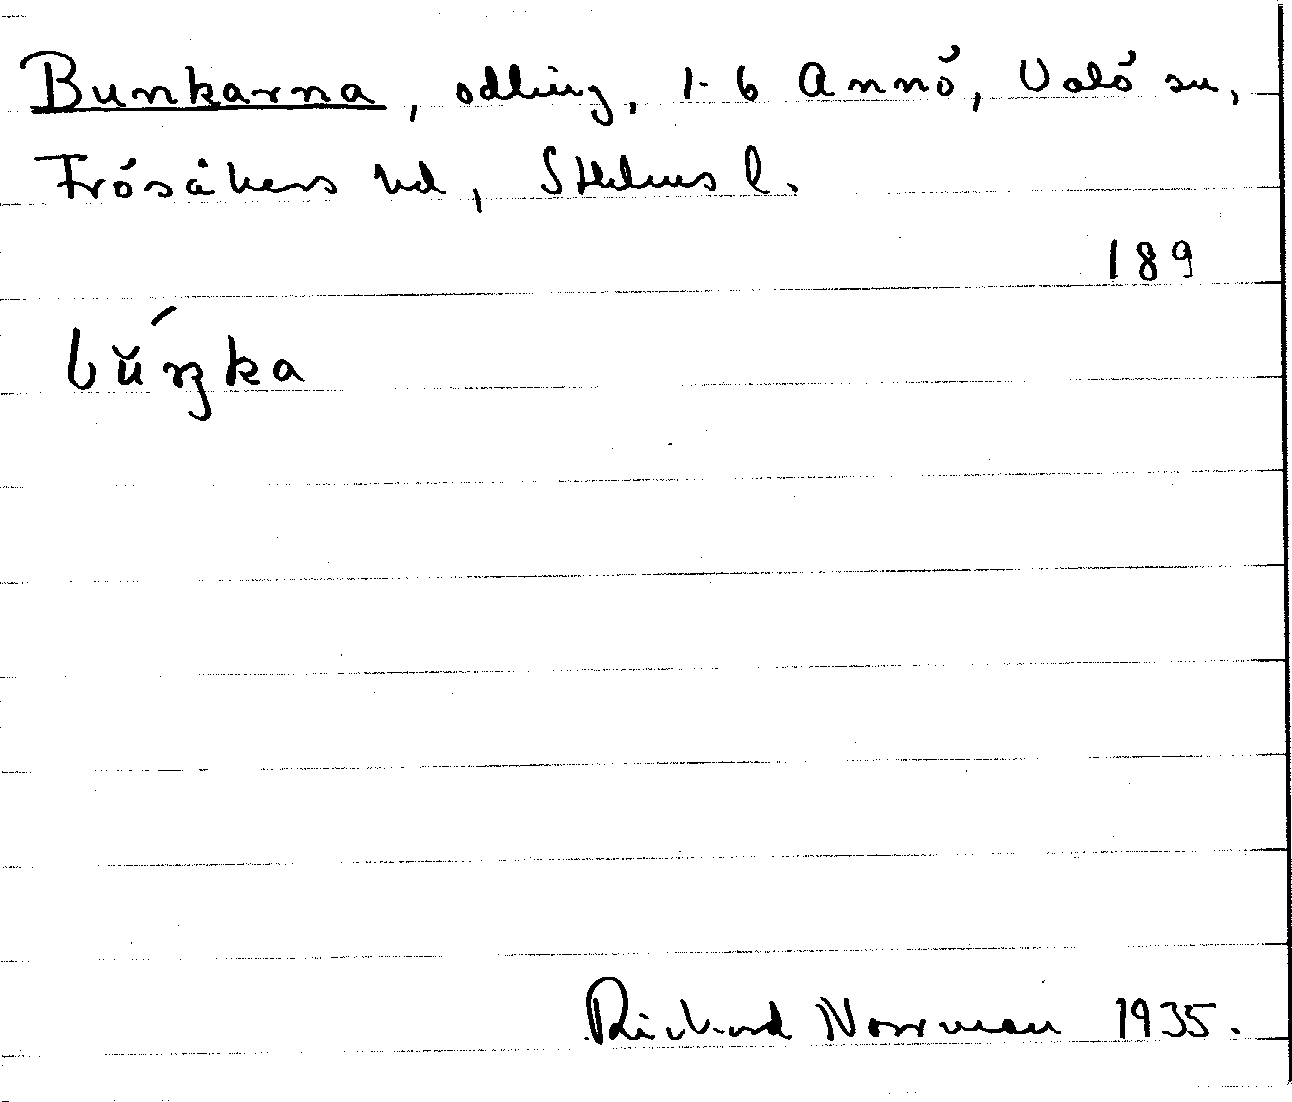 Bunkarna, odling, 1-6 Annö, Valö sn,
Frösåkers hd, Sthlms l.
189
bŭ́ŋka
Rickard Norrman 1935.